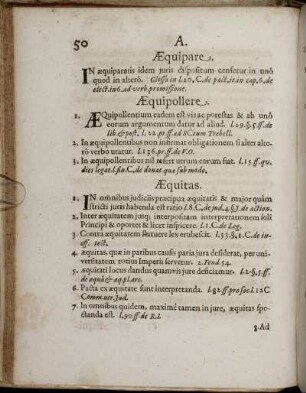 50 A.
Æquipare.
IN æquiparatis idem juris dispositum censetur in unô
quod in alterô. Glossa in l.20. C. de pact. it. in cap. 6. de
elect. in 6. ad verb. promissione.
Æquipollere.
1. ÆQuipollentium eadem est vis ac potestas & ab unô
eorum argumentum datur ad aliud. l.29.§.5.ff. de
lib. & post. l. 22. pr. ff. ad SCtum Trebell.
2. In æquipollentibus non infirmat obligationem si alter alte-
rô verbo utatur. l.136.pr.ff.de V.O.
3. In æquipollentibus nil refert utrum eorum fiat. l.15.ff. qu.
dies legat. l. fin. C. de donat. quæ sub modo.
Æquitas.
1. IN omnibus judiciis præcipua æquitatis & major quàm
stricti juris habenda est ratio l.8. C. de jud. 4. §.1. de action.
2. Inter æquitatem jusq; interpositam interpretationem soli
Principi & oportet & licet inspicere. l.1. C. de Leg.
3. Contra æquitatem statuere lex erubescit. l.33.§.1. C. de in-
off. test.
4. æquitas, quæ in paribus causis paria jura desiderat, per uni-
versitatem totius Imperii servetur. 2. Feud. 54.
5. æquitati locus dandus quamvis jure deficiamur. l.2.§.5.ff.
de aquâ & aq. pl. arc.
6. Pacta ex æquitate sunt interpretanda. l.32.ff. pro soc. l.12 C
Comm. utr. Jud.
7. In omnibus quidem, maximè tamen in jure, æquitas spe-
ctanda est. l.90.ff. de R.I.